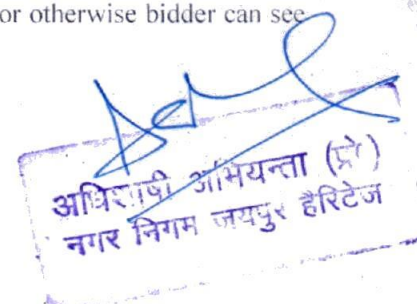 or otherwise bidder can see
अधिशाषी अभियन्ता (प्रो)
नगर निगम जयपुर हैरिटेज